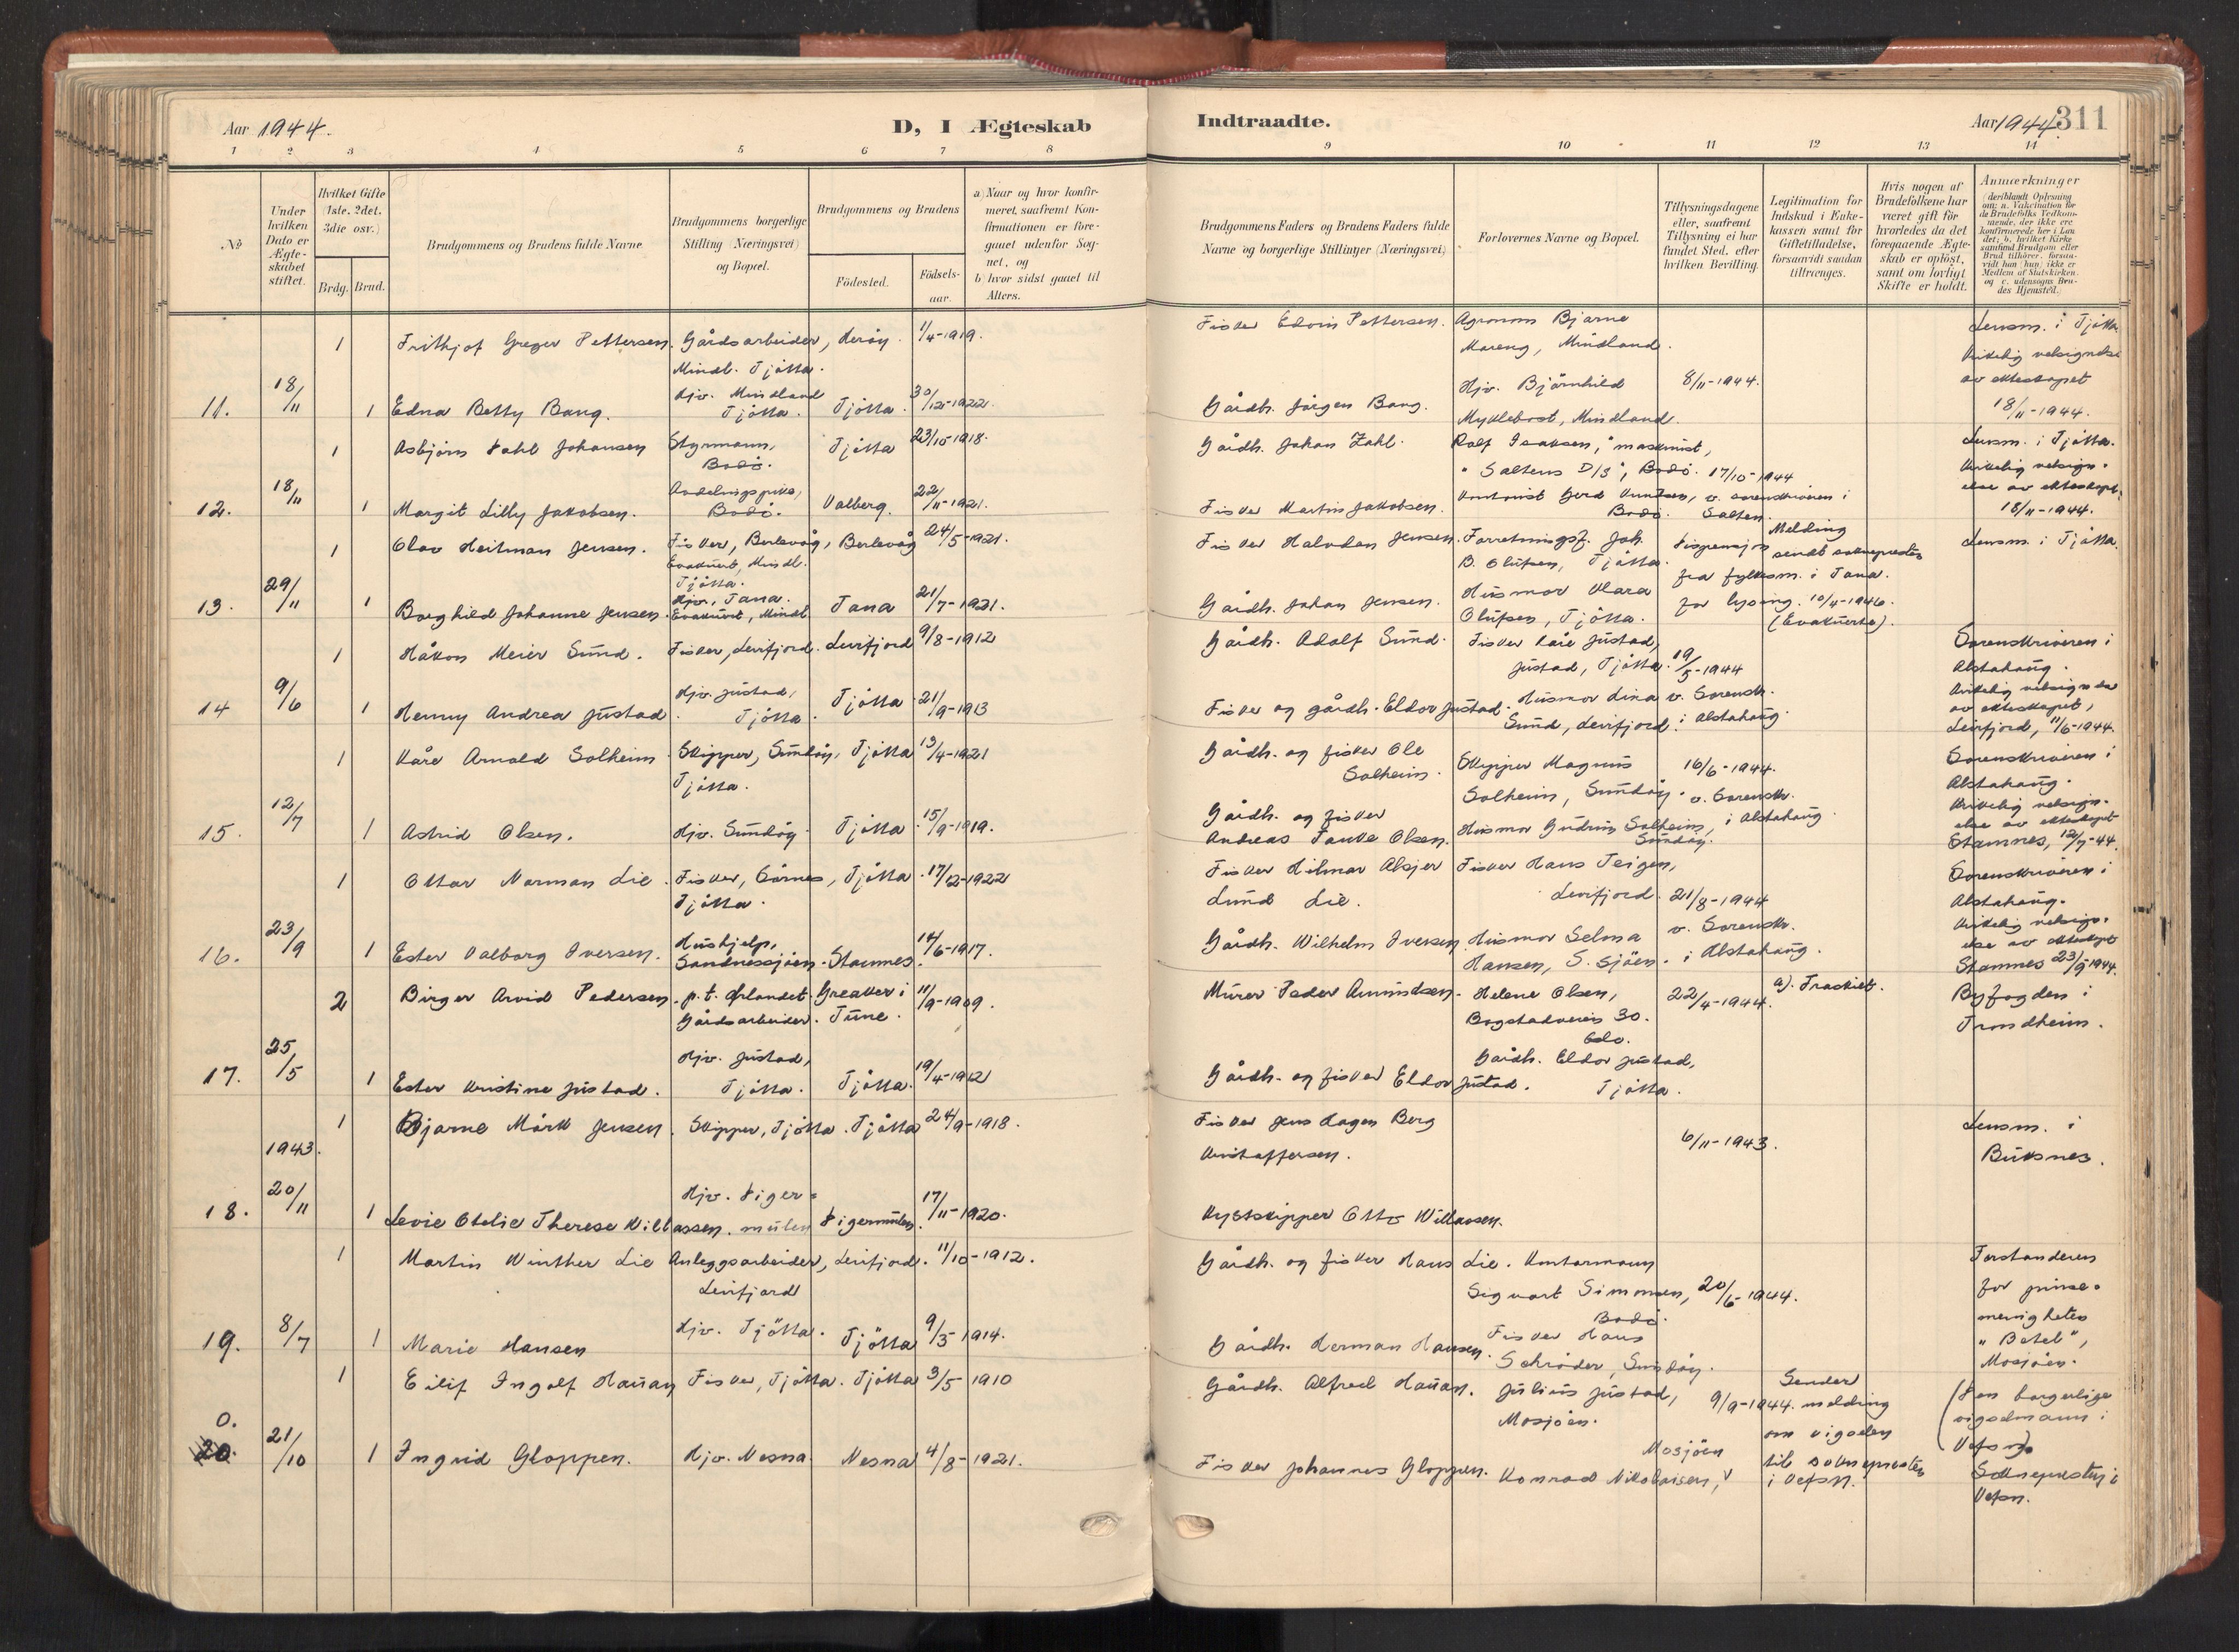 Aar 1944.
D, I Ægteskab
Indtraadte.
Aar 1944
311
1 2 3 4 5 6 7 8
9 10 11 12 13 14
№
Under hvilken Dato er Ægteskabet stiftet.
Hvilket Gifte (1ste, 2det, 3die osv.)
Brdg. Brud.
Brudgommens og Brudens fulde Navne
Brudgommens borgerlige Stilling (Næringsvei) og Bopæl.
Brudgommens og Brudens
Födested.
Födsels-aar.
a) Naar og hvor konfirmeret, saafremt Konfirmationen er foregaaet udenfor Sognet, og
b) hvor sidst gaaet til Alters.
Brudgommens Faders og Brudens Faders fulde Navne og borgerlige Stillinger (Næringsvei)
Forlovernes Navne og Bopæl.
Tillysningsdagene eller, saafremt Tillysning ei har fundet Sted, efter hvilken Bevilling.
Legitimation for Indskud i Enkekassen samt for Giftetilladelse, forsaavidt saadan tiltrænges.
Hvis nogen af Brudefolkene har været gift för hvorledes da det foregaaende Ægteskab er oplöst, samt om lovligt Skifte er holdt.
Anmærkninger
1 Frithjof Greger Pettersen. Gårdsarbeider, Herøy. 1/4-1919.
Mindl. Tjøtta.
Fisker Edvin Pettersen. Agronom Bjarne
Mareng, Mindland.
Lensm. i Tjøtta
Kirkelig velsignelse
av ekteskapet
18/11-1944.
11. 18/11 1 Edna Betty Bang. Hjv. Mindland Tjøtta. Tjøtta. 30/12-1922.
Gårdb. Jørgen Bang. Hjv. Bjørnhild
Myklebost, Mindland.
8/11-1944.
1 Asbjørn Dahl Johansen Styrmann, Bodø. Tjøtta 23/10-1918.
Gårdb. Johan Zahl. Rolf Isaksen, maskinist,
"Saltens D/S", Bodø. 17/10-1944
Lensm. i Tjøtta.
Kirkelig velsign-
else av ekteskapet.
18/11-1944.
12. 18/11 1 Margit Lilly Jakobsen. Avdelingspike, Bodø. Valberg. 22/11-1921.
Fisker Martin Jakobsen. Kontorist Gerd Knutsen, v. sorenskriveren i
Bodø. Salten.
1 Olav Heitman Jensen. Fisker, Berlevåg, Berlevåg 24/5-1921.
Evakuert, Mindl.
Tjøtta.
Fisker Halvdan Jensen. Forretningsf. Joh.
B. Olufsen, Tjøtta.
Dispensasjon
fra fylkesm.
for lysning.
Melding
sendt sokneprosten
i Tana.
10/4-1946.
(Evakuerte).
Lensm. i Tjøtta.
13. 29/11 1 Borghild Johanne Jensen. Hjv., Tana. Evakuert, Mindl. Tana 21/7-1921.
Gårdb. Johan Jensen. Husmor Klara
Olufsen, Tjøtta.
1 Håkon Meier Sund. Fisker, Leirfjord. Leirfjord 9/8-1912
Gårdb. Adolf Sund. Fisker Kåre Justad,
Justad, Tjøtta. 19/5-1944
Sorenskriveren i
Alstahaug.
Kirkelig velsignelse
av ekteskapet,
Leirfjord, 11/6-1944.
14 9/6 1 Henny Andrea Justad. Hjv. Justad, Tjøtta. Tjøtta. 21/9-1913
Fisker og gårdb. Eldor Justad. Husmor Lina v. Sorenskr.
Sund, Leirfjord. i Alstahaug.
1 Kåre Arnold Solheim. Skipper, Sundøy, Tjøtta 13/4-1921
Tjøtta.
Gårdb. og fisker Ole
Solheim.
Skipper Magnus
Solheim, Sundøy.
16/6-1944.
v. Sorenskr.
i Alstahaug.
Sorenskriveren i
Alstahaug.
Kirkelig velsign-
else av ekteskapet
Stamnes, 12/7-44.
15. 12/7 1 Astrid Olsen. Hjv. Sundøy. Tjøtta. 15/9-1919.
Gårdb. og fisker
Andreas Tanke Olsen. Husmor Gudrun Solheim,
Sundøy.
1 Ottar Norman Lie. Fisker, Sørnes, Tjøtta. 17/12-1922
Tjøtta.
Fisker Hilmar Absjer
Lund Lie.
Fisker Hans Teigen,
Leirfjord. 21/8-1944
v. Sorenskr.
i Alstahaug.
Sorenskriveren i
Alstahaug.
Kirkelig velsign-
else av ekteskapet
Stamnes 23/9-1944.
16. 23/9 1 Ester Valborg Iversen. Hushjelp, Sandnessjøen. Stamnes. 14/6-1917.
Gårdb. Wilhelm Iversen. Husmor Selma
Hansen, S.sjøen.
2 Birger Arvid Pedersen. p.t. Ørlandet. Greaker i 11/9-1909.
Gårdsarbeider. Tune.
Murer Peder Amundsen. Helene Olsen,
Bogstadveien 30.
Oslo.
22/4-1944.
a). Fraskilt.
Byfogden i
Trondheim.
17. 25/5 1 Ester Kristine Justad. Hjv. Justad, Tjøtta. Tjøtta. 19/4-1912
Gårdb. og fisker Eldor Justad. Gårdb. Eldor Justad,
Tjøtta.
1 Bjarne Mårk Jensen. Skipper, Tjøtta. Tjøtta 24/9-1918.
Fisker Jens Hagen Berg
Kristoffersen.
6/11-1943.
Lensm. i
Buksnes.
1943.
18. 20/11 1 Levie Otelie Therese Willassen. Hjv. Digermulen Digermulen. 17/11-1920.
Kystskipper Otto Willassen.
1 Martin Winther Lie Anleggsarbeider, Leirfjord. 11/10-1912.
Leirfjord
Gårdb. og fisker Hans Lie. Kontormann
Sigvart Simonsen, 20/6-1944.
Bodø.
Forstanderen
for pinse-
menigheten
"Betel",
Mosjøen.
19. 8/7 1 Marie Hansen Hjv. Tjøtta. Tjøtta 9/3-1914.
Gårdb. Herman Hansen. Fisker Hans
Schrøder, Sundøy.
1 Eilif Ingolf Hauan Fisker, Tjøtta. Tjøtta 3/5 1910
Gårdb. Alfred Hauan. Julius Justad,
Mosjøen.
9/9-1944.
Sender
melding
om vigselen
til sokneprosten
i Vefsn.
(Den borgerlige
vigselmann i
Vefsn).
Sokneprosten i
Vefsn.
0.
20. 21/10 1 Ingrid Gloppen. Hjv. Nesna. Nesna 4/8-1921.
Fisker Johannes Gloppen. Konrad Nikolaisen,
Mosjøen